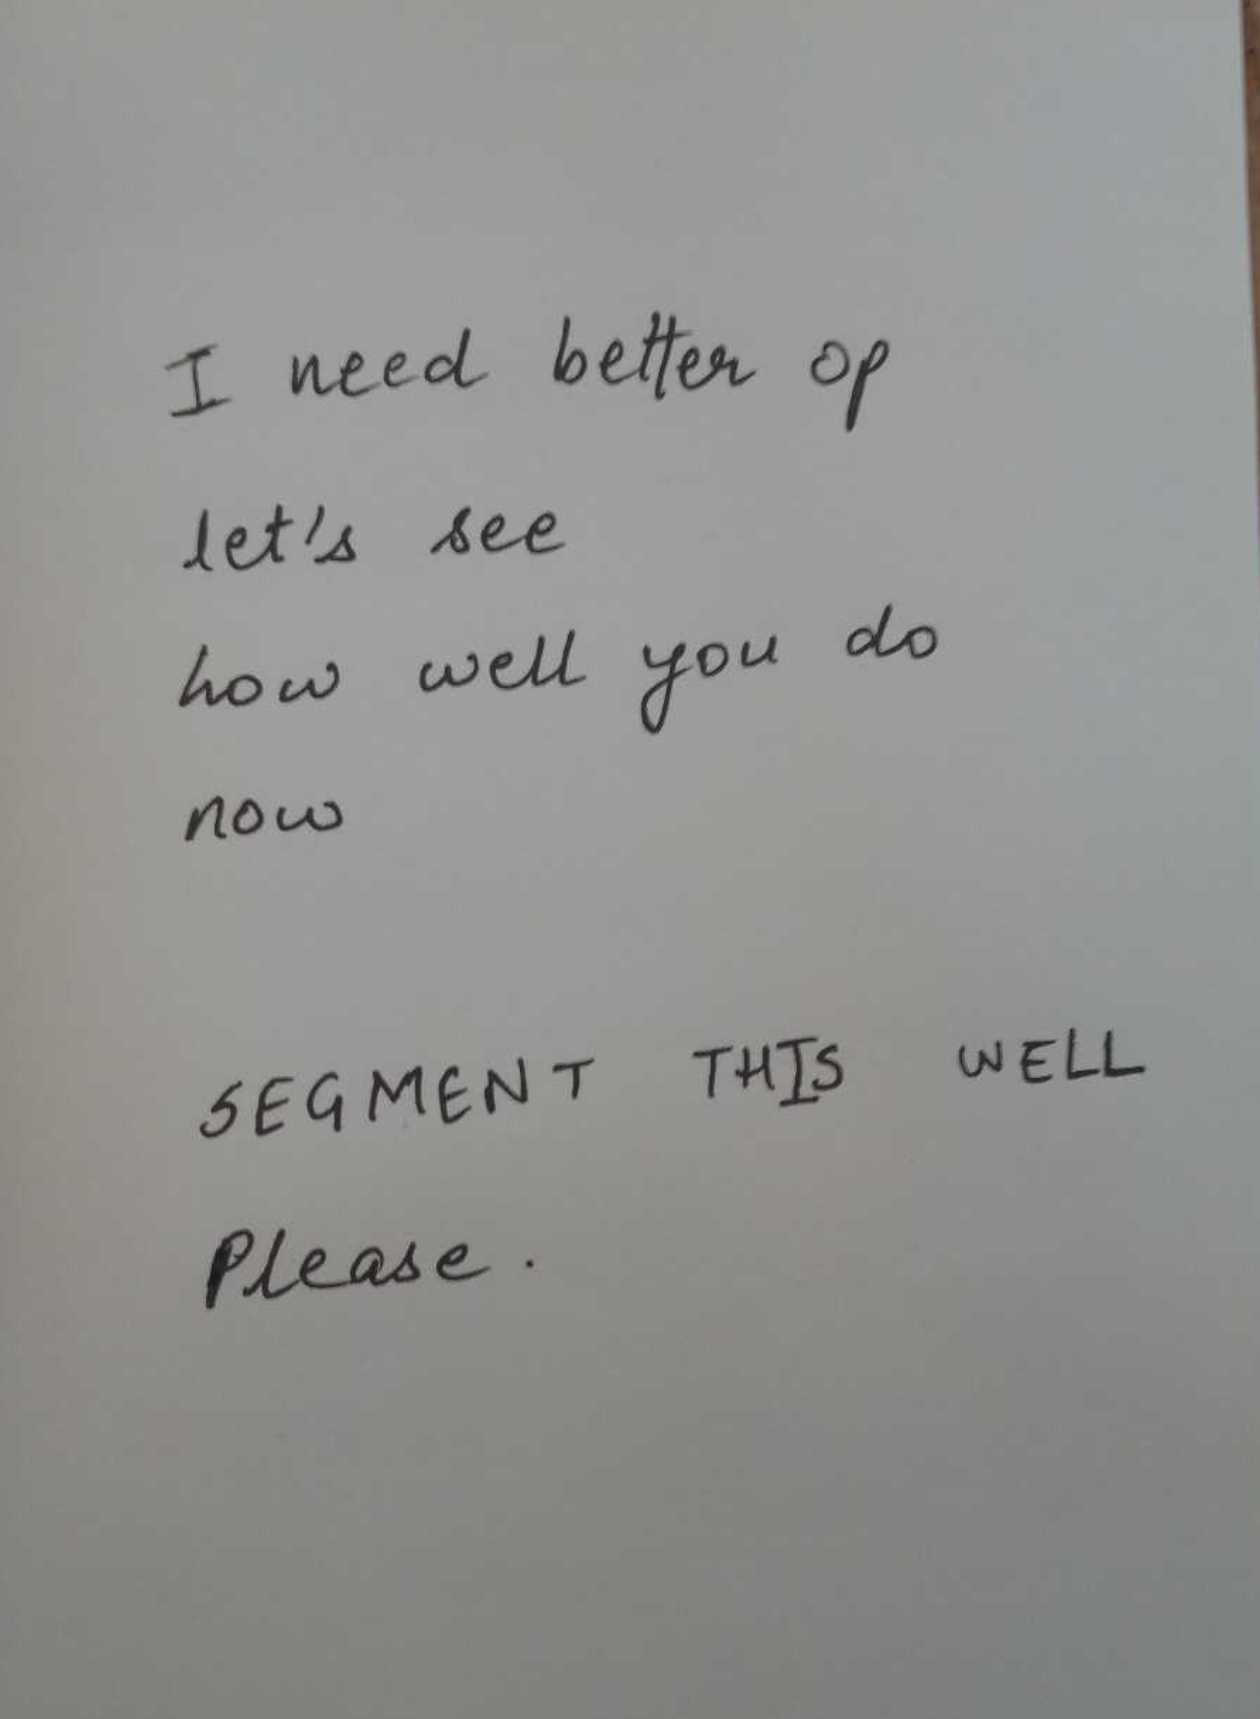 I need better op
let's see
how well you do
now
SEGMENT THIS WELL
Please.